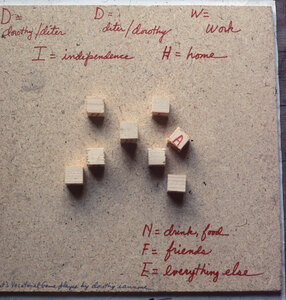 D = D = W =
dorothy/diter diter/dorothy work
I = independence H = home
A
N = drink, food
F = friends
E = everything else
vocational game played by dorothy iannone